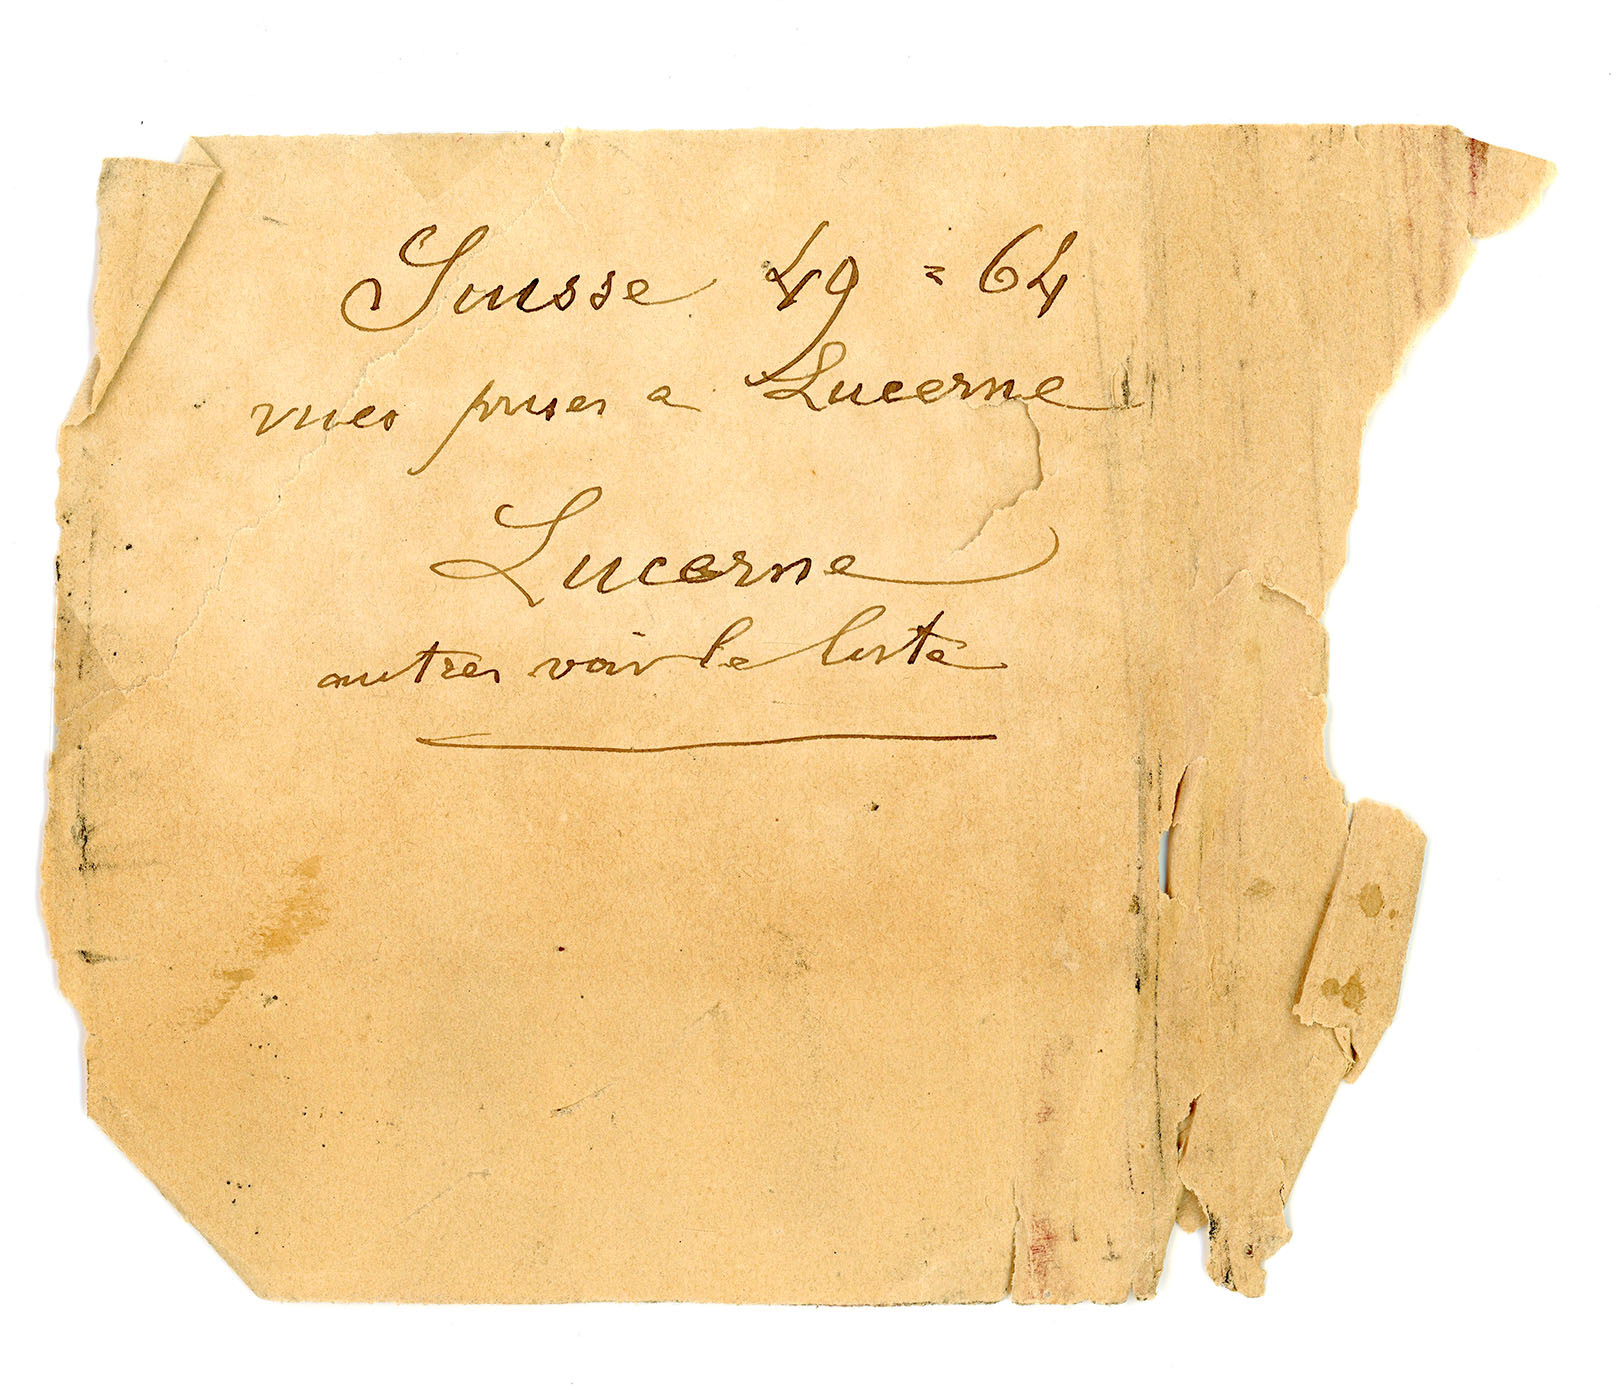 Suisse 49 = 64
vues prises a Lucerne
Lucerne
autres voir le liste